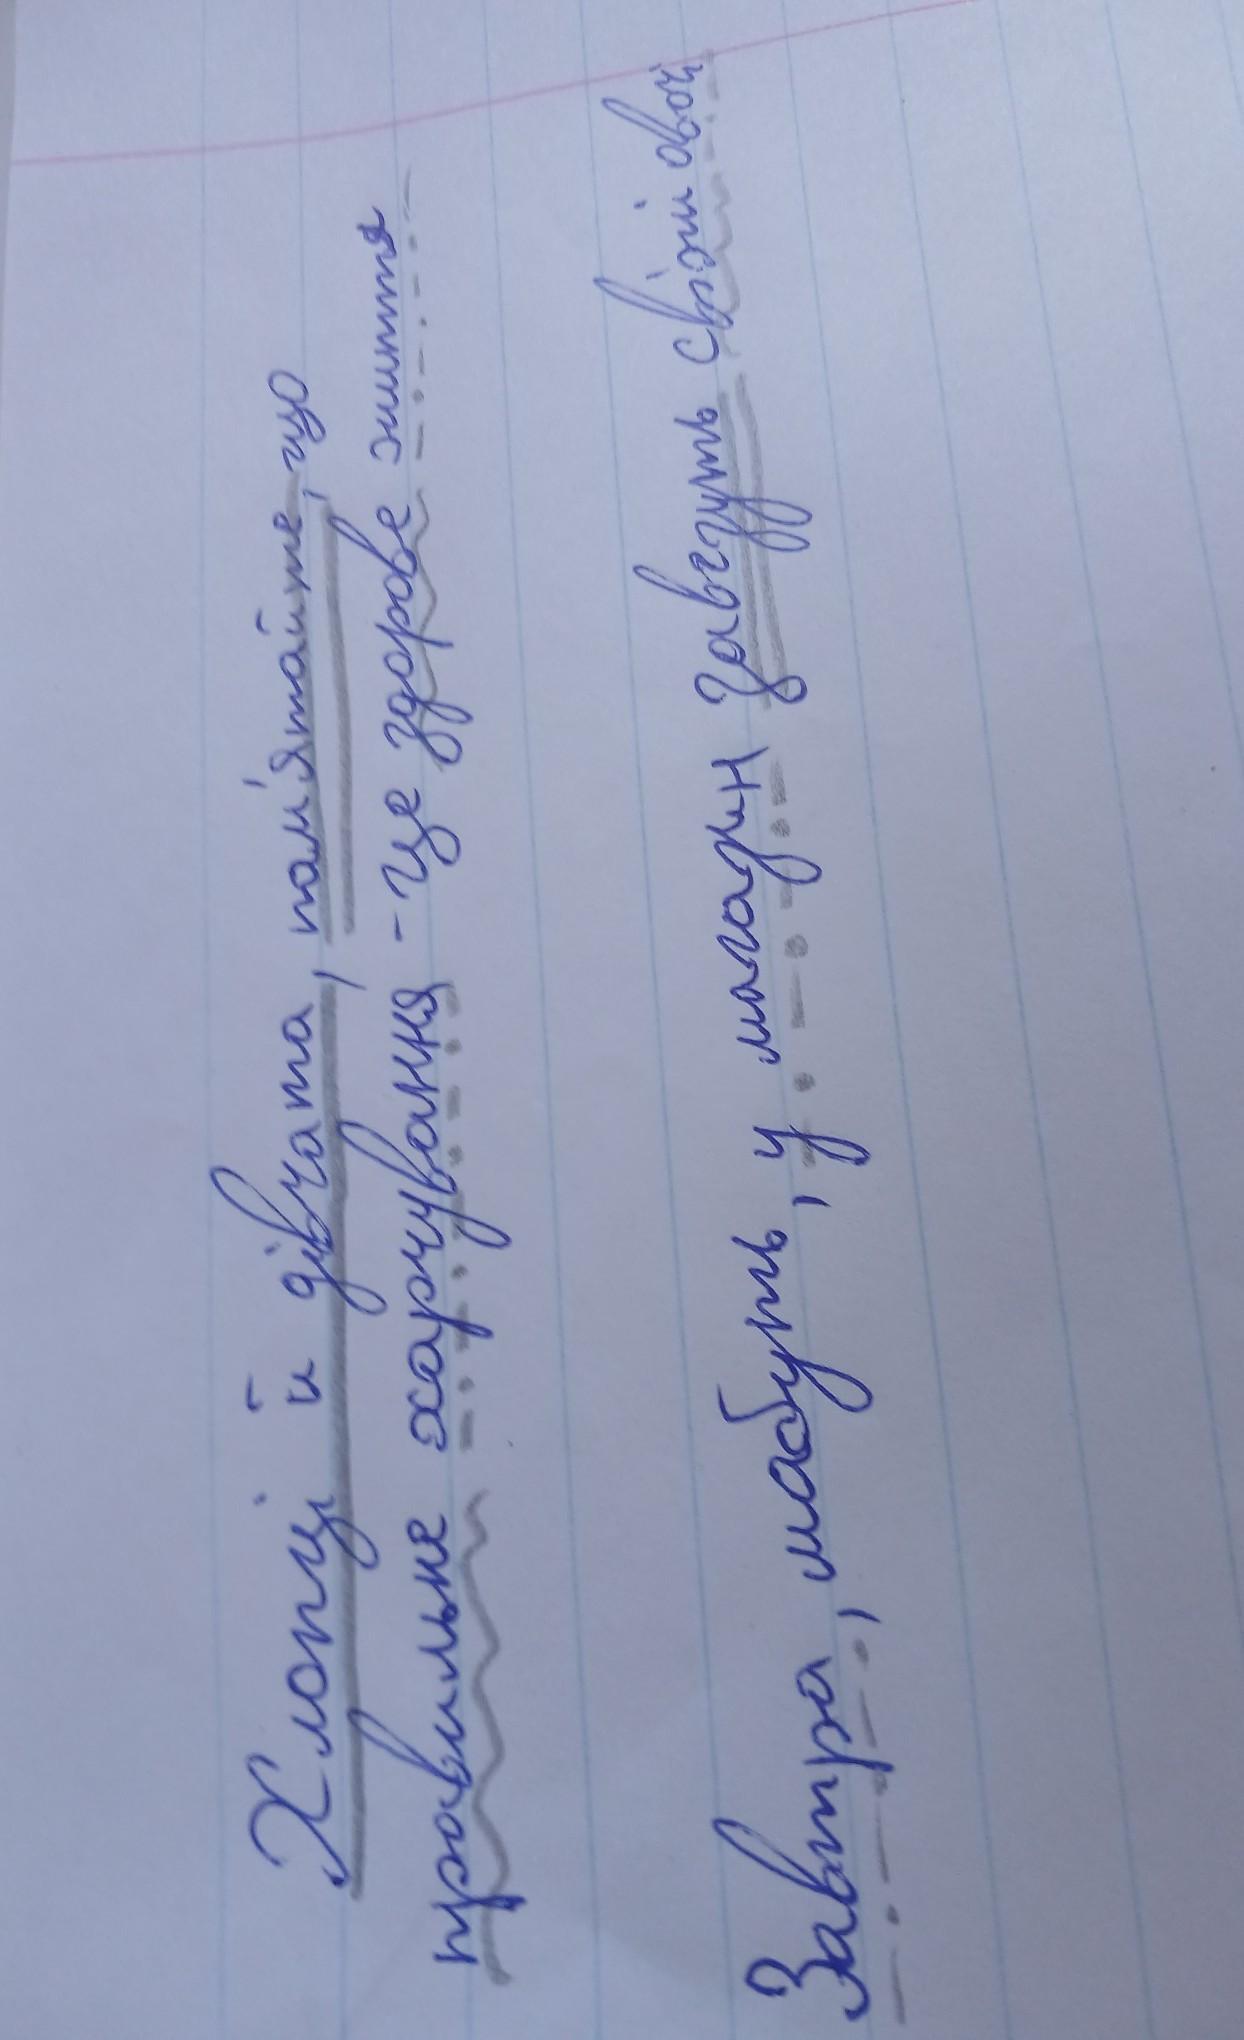 Хлопці й дівчата, пам'ятайте, що
правильне харчування - це здорове життя
Завтра, мабуть, у магазин завгуть свіжі овочі